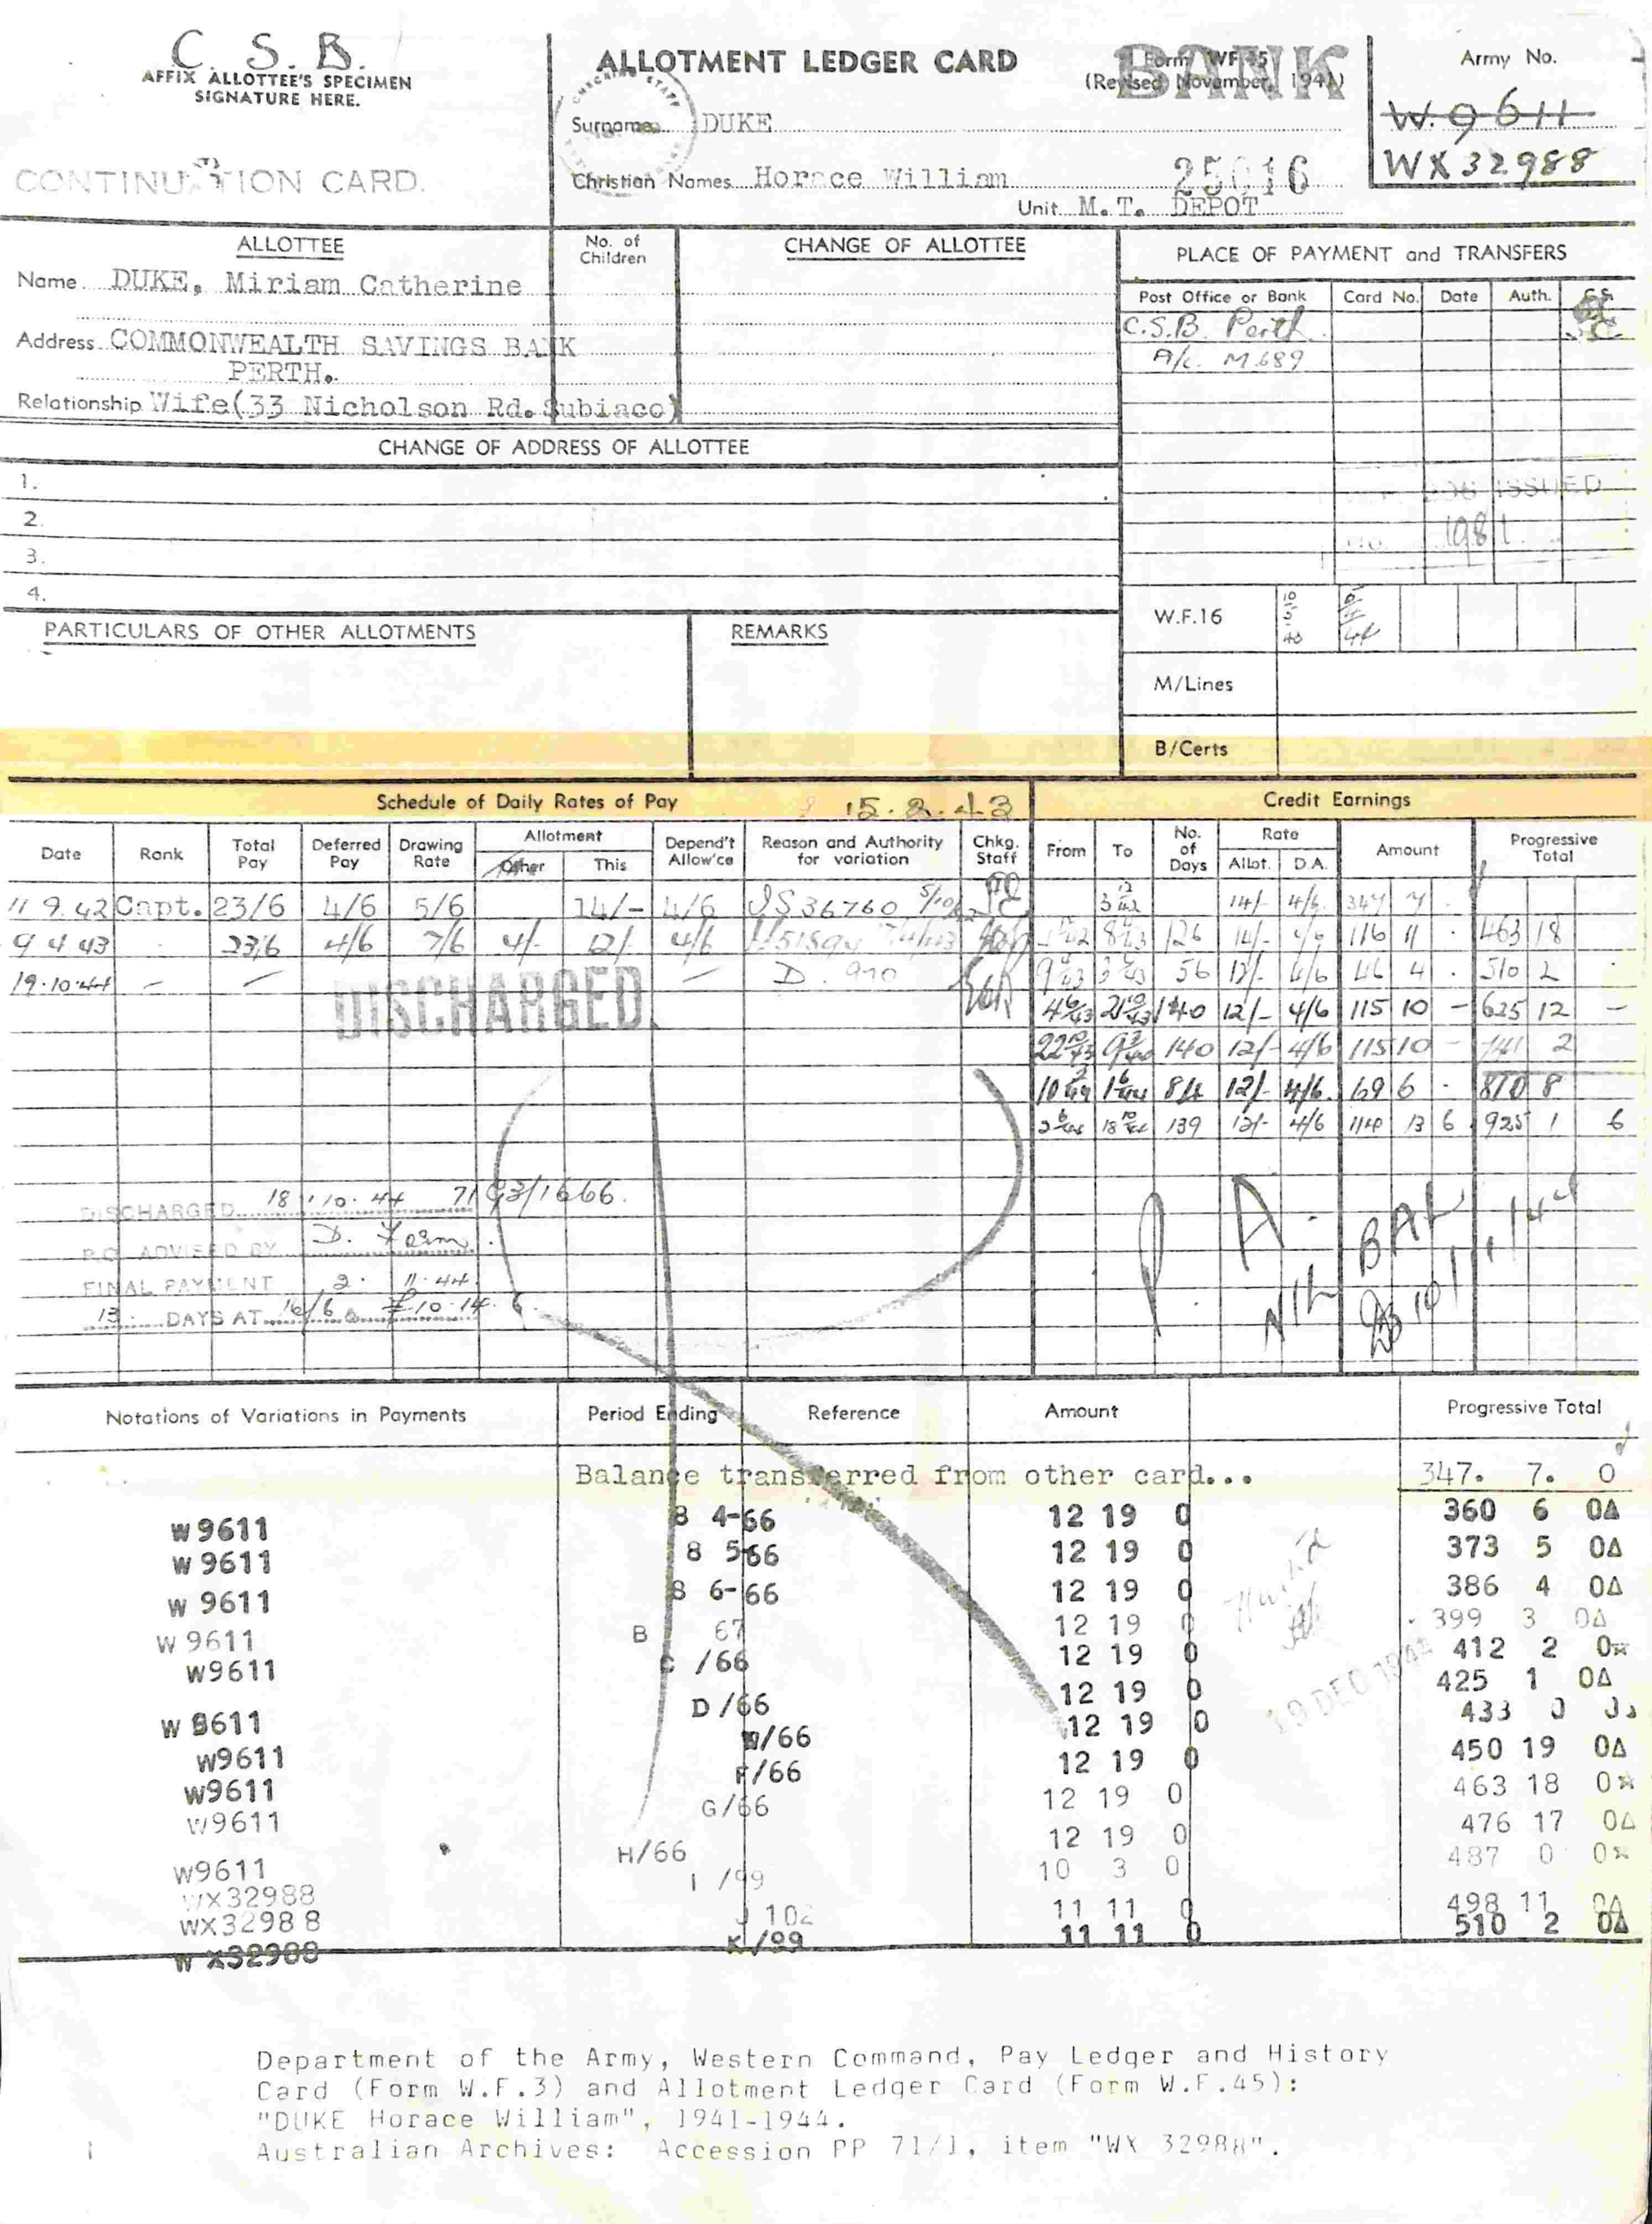 C. S. B.
AFFIX ALLOTTEE'S SPECIMEN
SIGNATURE HERE.
CONTINUATION CARD.
ALLOTMENT LEDGER CARD
BANK
Form WF 45
(Revised November, 1941)
Surname DUKE
Christian Names Horace William
25016
Unit M. T. DEPOT
Army No.
W.9611
WX32988
ALLOTTEE
Name DUKE, Miriam Catherine
Address COMMONWEALTH SAVINGS BANK
PERTH.
Relationship Wife(33 Nicholson Rd. Subiaco)
No. of Children
CHANGE OF ALLOTTEE
PLACE OF PAYMENT and TRANSFERS
Post Office or Bank Card No. Date Auth. C.S.
C.S.B. Perth
A/c. M.689
ISSUED
1981
CHANGE OF ADDRESS OF ALLOTTEE
1.
2.
3.
4.
PARTICULARS OF OTHER ALLOTMENTS
REMARKS
W.F.16
M/Lines
B/Certs
Schedule of Daily Rates of Pay 15.2.43
Credit Earnings
Date Rank Total Pay Deferred Pay Drawing Rate Allotment Other This Depend't Allow'ce Reason and Authority for variation Chkg. Staff
From To No. of Days Rate Allot. D.A. Amount Progressive Total
11 9.42 Capt. 23/6 4/6 5/6 14/- 4/6 JS36760 14/- 4/6 347 7
9 4 43 23/6 4/6 7/6 4/- 12/- 4/6 126 14/- 4/6 116 11 463 18
19.10.44 — — — D. 910 56 12/- 4/6 46 4 510 2
DISCHARGED.
140 12/- 4/6 115 10 - 625 12 -
140 12/- 4/6 115 10 - 741 2
84 12/- 4/6 69 6 - 810 8
139 12/- 4/6 114 13 6 925 1 6
DISCHARGED 18.10.44 71 93/1666.
P.O. ADVISED BY D. Form.
FINAL PAYMENT 2. 11.44.
13 DAYS AT 16/6 = £10.14.6.
P. A.
NIL BAL
Notations of Variations in Payments Period Ending Reference Amount Progressive Total
Balance transferred from other card... 347. 7. 0
W9611 8 4-66 12 19 0 360 6 0Δ
W9611 8 5-66 12 19 0 373 5 0Δ
W 9611 8 6-66 12 19 0 386 4 0Δ
W 9611 B 67 12 19 0 399 3 0Δ
W9611 C /66 12 19 0 412 2 0☆
W 9611 D /66 12 19 0 425 1 0Δ
W9611 /66 12 19 0 433 0
W9611 F/66 12 19 0 450 19 0Δ
W9611 G/66 12 19 0 463 18 0☆
W9611 H/66 12 19 0 476 17 0Δ
WX32988 I /99 10 3 0 487 0 0☆
WX32988 J 102 11 11 0 498 11 0Δ
WX32988 K/99 11 11 0 510 2 0Δ
19 DEC 1944
Department of the Army, Western Command, Pay Ledger and History
Card (Form W.F.3) and Allotment Ledger Card (Form W.F.45):
"DUKE Horace William", 1941-1944.
Australian Archives: Accession PP 71/1, item "WX 32988".